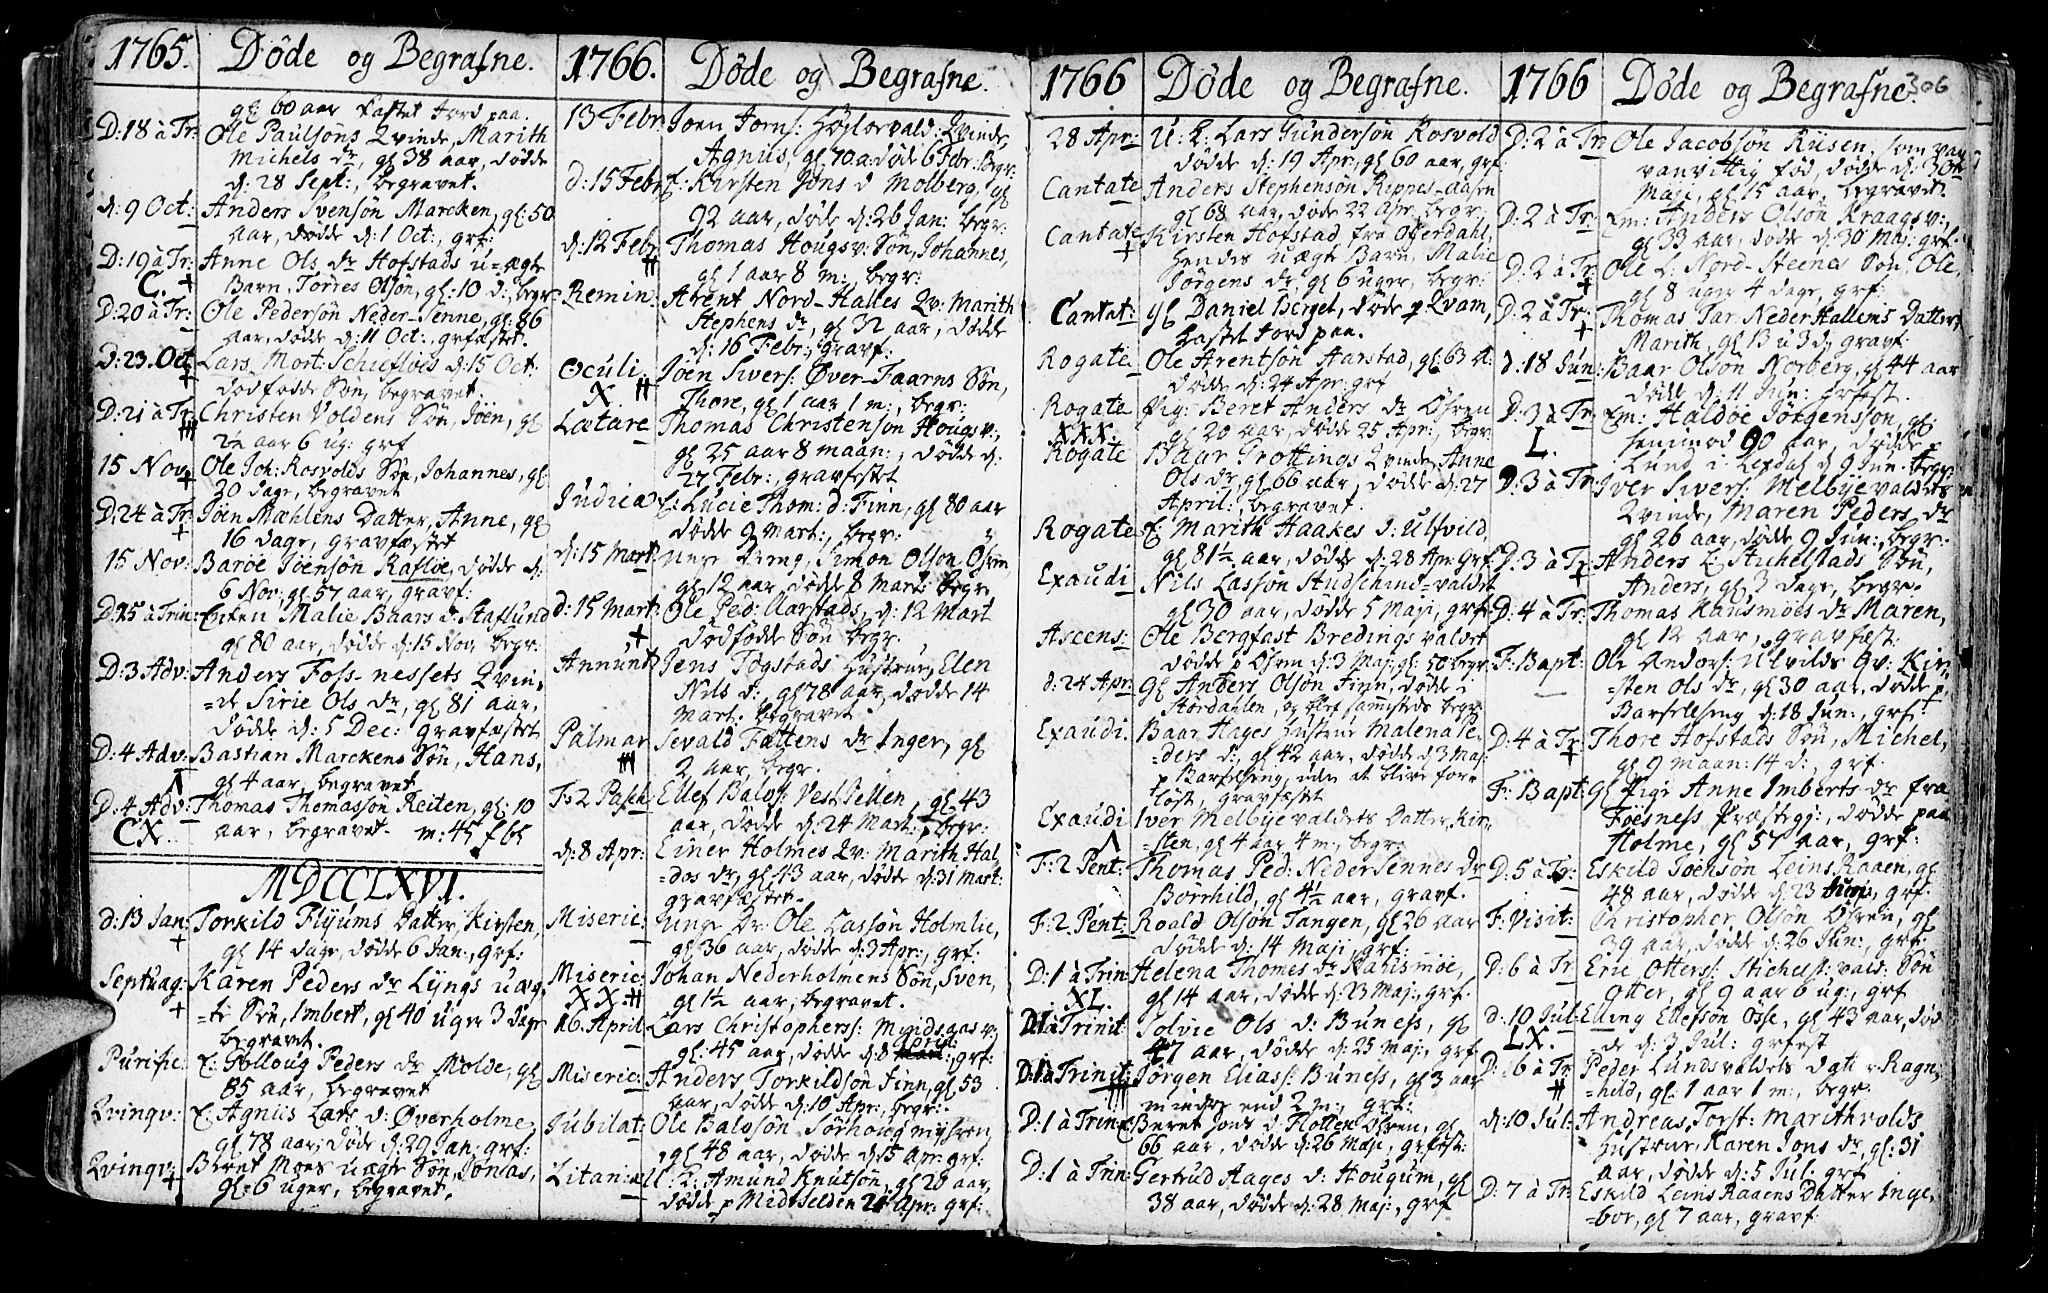 1765. Døde og Begrafne.
gl 60 aar kastet Jord paa.
D: 18 à Tr: Ole Paulsøns Qvinde, Marith
Michels dr, gl 38 aar, dødde
d: 28 Sept:, begravet.
d: 9 Oct: Anders Svensøn Marcken, gl: 50
aar, dødde d: 1 Oct:, grf:
D: 19 à Tr: Anne Ols dr Hofstads u=ægte
C. + Barn, Torres Olsøn, gl: 10 d:, begr:
D: 20 à Tr: Ole Pedersøn Neder-Senne, gl: 86
aar, dødde d: 11 Oct:, grfæstet.
D: 23. Oct Lars Mort: d: 15 Oct:
+ dødfødde Søn, begravet.
D: 21 à Tr Christen Voldens Søn, Joen, gl
aar 6 ug: grf
15 Nov: Ole Joh: Rosvolds Søn, Johannes, gl
+ 20 dage, begravet
D: 24 à Tr Joen Mæhlens Datter, Anne, gl
+ 16 dage, gravfæstet
15 Nov: Baroe Joensøn Kafloe, dødde d:
6 Nov: gl 57 aar, gravf:
D: 25 à Trin: Enken Malie Baars d: Staflund
gl 80 aar, dødde d: 15 Nov, begr:
D: 3 Adv: Anders Foss-nessets Qvin,
=de Sirie Ols dr, gl 81 aar,
dødde d: 5 Dec: gravfæstet
D: 4 Adv: Bastian Marckens Søn, Hans,
gl 4 aar, begravet
D: 4 Adv: Thomas Thomassøn Reiten, gl: 10
CX. aar, begravet. m: 45 f 65
MDCCLXVI.
d: 13 Jan: Torkild Flyums Datter, Kirsten,
+ gl 14 dage, dødde 6 Jan:, grf:
Septuag: Karen Peders dr Lyngs uæg,
+ =te Søn, Imbert, gl 40 uger 3 dage
begravet.
Purific: E: Golloug Peders dr Molde, gl
85 aar, begravet
Qvinqv: E: Agnis Lars d: Øverholme,
gl 78 aar, døde d: 29 Jan: grf:
Qvinqv: Beret Moes uægte Søn, Jonas,
+ gl: 6 uger, begravet.
1766. Døde og Begrafne.
13 Febr: Joen Jorns: Qvinde,
Agnis, gl 70 a: døde 6 Febr: begr:
d: 15 Febr E: Kirsten Jons d Molberg, gl
92 aar, døde d: 26 Jan: begr:
d: 12 Febr: Thomas Hougsv: Søn, Johannes,
gl 1 aar 8 m:, begr:
Remin: Arent Nord-Halles Qv: Marith
Stephens dr, gl 32 aar, dødde
d: 16 Febr:, gravf:
Oculi. Joen Sivers: Øver-Faarns Søn,
X Thore, gl 1 aar 1 m:, begr:
Lætare Thomas Christensøn Hougsv:,
gl 25 aar 8 maan:, dødde d:
27 Febr:, gravfæstet
Judica E: Lucie Thom: d: Finn, gl 80 aar
dødde 9 Mart:, begr:
d: 15 Mart: Unge Dreng, Simon Olsøn Øfren
gl 12 aar, dødde 8 Mart: begr
d: 15 Mart: Ole Ped: Aarstads, d: 12 Mart
+ dødfødde Søn begr:
Annunt: Jens Togstads Hustrue, Elen
Nils d:, gl 78 aar, dødde 14
Mart: begravet
Palmar Sevald Fattens dr Inger, gl
2 aar, begr.
F: 2 Pasch: Ellef Balvs: Vest Sellen, gl 43
aar, dødde d: 24 Mart: begr:
d: 8 Apr: Einer Holmes Qv: Marith Hal,
=dos dr, gl 43 aar, dødde d: 31 Mart:
gravfæstet.
Miseric: Unge Dr: Ole Lassøn Holmlie,
gl 36 aar, dødde d: 3 Apr:, grf:
Miseric: Johan Nederholmens Søn, Sven,
XX. gl 1½ aar, begravet.
16. April: Lars Christophers:
gl: 45 aar, dødde d: 8 April, grf:
Miseric: Anders Torkildsøn Finn, gl 53
aar, dødde d: 10 Apr:, begr:
Jubilat: Ole Balssøn Sørhoug
gl 48 aar, dødde d: 5 Apr: grf:
Litaniæ U: K: Amund Knutsøn, gl 20 aar,
dødde p Medsselden 21 Apr: grf:
1766 Døde og Begrafne.
28 Apr: U: K: Lars Gundersøn Rosvold
dødde d: 19 Apr: gl 60 aar, grf
Cantate Anders Stephensøn Repnes-aasen
gl 68 aar, døde 22 Apr: begr,
Cantate Kirsten Hofstad fra Overdahl,
+ hendes uægte Barn, Malie
Jørgens dr, gl 6 uger, begr:
Cantat: gl Daniel Berget, døde p Qvam,
kastet Jord paa.
Rogate Ole Arentsøn Aarstad, gl: 63 a:
dødde d: 24 Apr: grf
Rogate Pig: Beret Anders dr Øfren
XXX. gl 20 aar, dødde 25 Apr:, begr:
Rogate Baar Trottings Qvinde, Anne
Ols dr, gl 66 aar, dødde d: 27
April:, begravet.
Rogate E: Marith Haakes d: Ulfvild
gl 81½ aar, dødde d: 28 Apr: grf
Exaudi Nils Lassøn valdet
gl 30 aar, dødde 5 Maji, grf
Ascens: Ole Bergfast Bredings valdet
dødde p Øfren d: 3 Maj: gl: 50 begr
d: 24 Apr: gl Anders Olsøn Finn, dødde i
Størdahlen, og blef sammesteds begr:
Exaudi. Baar Hages Hustrue Malena Pe,
=ders d:, gl 42 aar, dødde d 3 Maj:
p Barselseng, uden at blive for=
løst, gravfæstet
Exaudi Iver Melbyevaldets Datter, Kir,
=sten, gl 4 aar 4 m:, begr:
F: 2 Pent: Thomas Ped: Neder Sennes Dr
Børhild, gl 4½ aar, gravf.
F: 2 Pent: Roald Olsøn Tangen, gl 26 aar
dødde d: 14 Maji, grf:
D: 1 à Trin: Helena Thomes dr Kausmoe,
XL. gl 14 aar, dødde d: 23 Maj:, grf.
D: 1 à Trinit: Solvie Ols d: Buness, gl
47 aar, dødde d: 25 Maj:, grf
D: 1 à Trinit: Jørgen Eliass: Buness, gl 3 aar
mindre end 2 m:, grf:
D: 1 à Trin: E: Beret Jons d: Flotten Øfren, gl
66 aar, dødde d: 26 Maji, grfæst:
D: 1 à Trin: Gertrud Aages d: Hougum, gl
38 aar, dødde d: 28 Maj:, grf
1766 Døde og Begrafne. 306
D: 2 à Tr Ole Jacobsøn Riisen, som var
vanvittig fød, dødde d: 30te
Maji, gl 15 aar, begravet.
D: 2 à Tr: Em: Anders Olsøn Kraagsv:,
gl 33 aar, dødde d: 30 Maj: grf.
D: 2 à Tr Ole L: Nord-Steenes Søn, Ole,
+ gl 8 uger 4 dage, grf:
D: 2 à Tr: Thomas Tar: Neder Hallems Datter,
+ Marith, gl 13 u 3 d, gravf:
d: 18 Jun: Baar Olsøn Norberg, gl 44 aar
dødde d: 11 Jun: grfest.
D: 3 à Tr Em: Haldoe Jørgenssøn, gl:
L. henimod 90 aar, dødde p
Lund i d 9 Jun: begr:
D: 3 à Tr: Iver Sivers: Melbyevaldets
Qvinde, Maren Peders dr
gl 26 aar, dødde 9 Jun:, begr.
D: 3 à Tr Anders E: Stichelstads Søn,
+ Anders, gl 3 dage, begr.
D: 4 à Tr: Thomas Kausmoes dr Maren,
gl 12 aar, gravfæst:
F: Bapt: Ole Anders: Ulvilds Qv: Kir,
=sten Ols dr, gl 30 aar, dødde p
Barselseng d: 18 Jun:, grf:
D: 4 à Tr Thore Hofstads Søn, Michel,
+ gl 9 maan: 14 d:, grf:
F: Bapt: gl Pige Anne Imberts dr fra
Føesness Præstegj:, dødde paa
Holme, gl 57 aar, grf:
D: 5 à Tr: Eskild Joensøn Leins Raaen, gl
48 aar, dødde d: 23 Junii, grf:
F: Visit: Christopher Olsøn Øfren, gl
39 aar, dødde d: 26 Jun:, grf:
D: 6 à Tr Eric Otters: Stichelst: vals: Søn
Otter, gl 9 aar 6 ug:, grf
d: 10 Jul: Elling Ellefsøn Osse, gl 43 aar, død
LX. =de d: 3 Jul: grfest
D: 6 à Tr Peder Lundsvaldets Datt r Ragn,
=hild, gl: 1 aar 1 m:, begr:
d: 10 Jul: Andreas Torst: Marithvolds
Hustrue, Karen Jons dr, gl: 31
aar, dødde d: 5 Jul: grf
D: 7 à Tr: Eskild Leins Raaens Datter Inge,
=bor, gl 7 aar, gravf